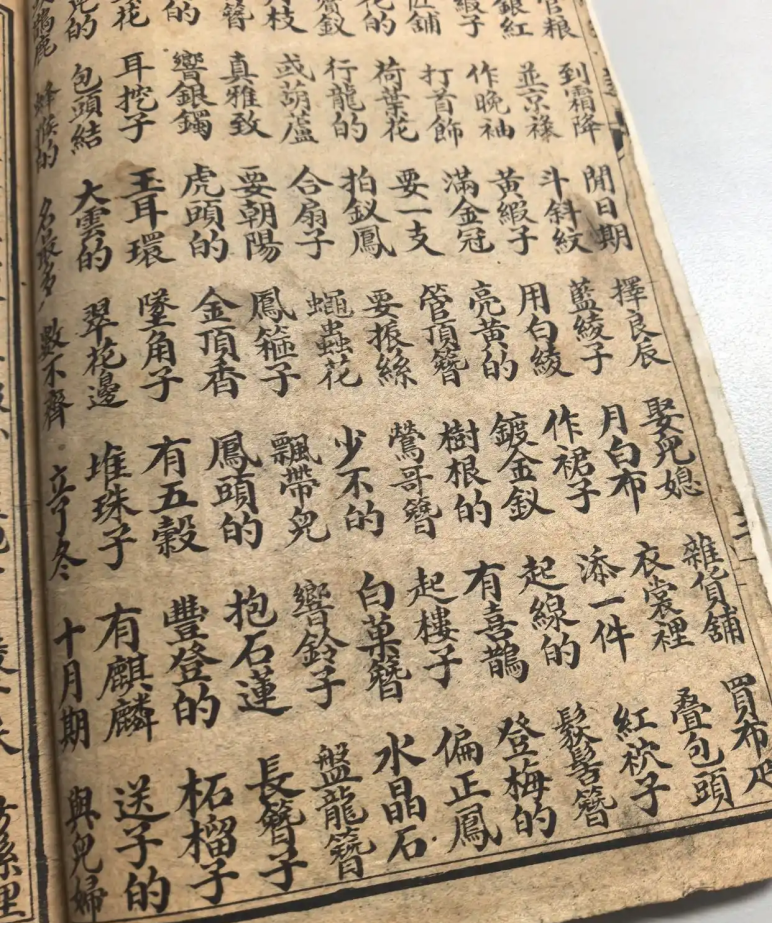 到霜降 閒日期 擇良辰 娶兒媳 雜貨舖 買布疋
銀紅 並京 斗斜紋 藍綾子 月白布 衣裳裡 叠包頭
緞子 作晚袖 黃緞子 用白綾 作裙子 添一件 紅衭子
舖 打首飾 滿金冠 亮黃的 鍍金釵 起線的 鬏髻簪
花的 荷葉花 要一支 管頂簪 樹根的 有喜鵲 登梅的
釵 行龍的 拍釵鳳 要振絲 鶯哥簪 起樓子 偏正鳳
枝 或葫蘆 合扇子 蠅蟲花 少不的 白菓簪 水晶石
簪 真雅致 要朝陽 鳳箍子 飄帶兒 響鈴子 盤龍簪
的 響銀鐲 虎頭的 金頂香 鳳頭的 抱石蓮 長簪子
花 耳挖子 玉耳環 墜角子 有五穀 豐登的 柘榴子
的 包頭結 大雲的 翠花邊 堆珠子 有麒麟 送子的
鹿 蜂猴的 名最多 數不齊 立了冬 十月期 與兒婦